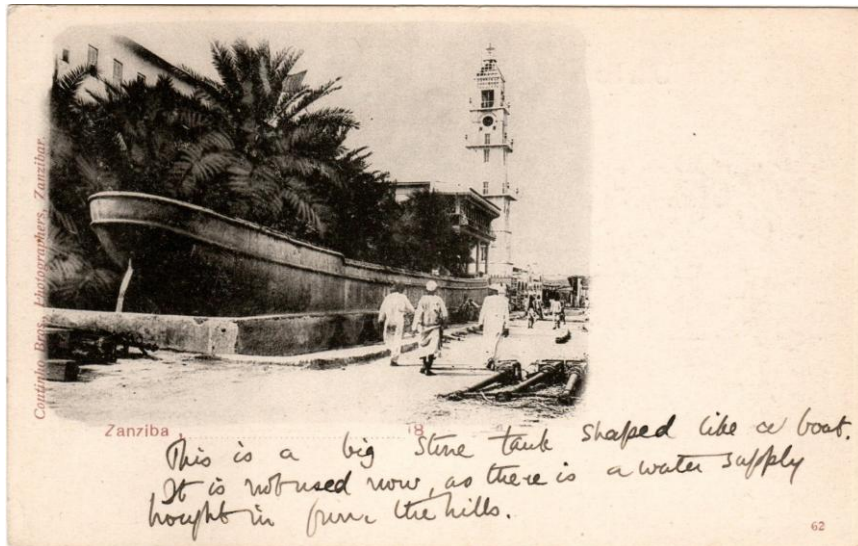 Coutinho Bros., Photographers, Zanzibar.
Zanziba , 18
This is a big stone tank shaped like a boat.
It is not used now, as there is a water supply
bought in from the hills.
62